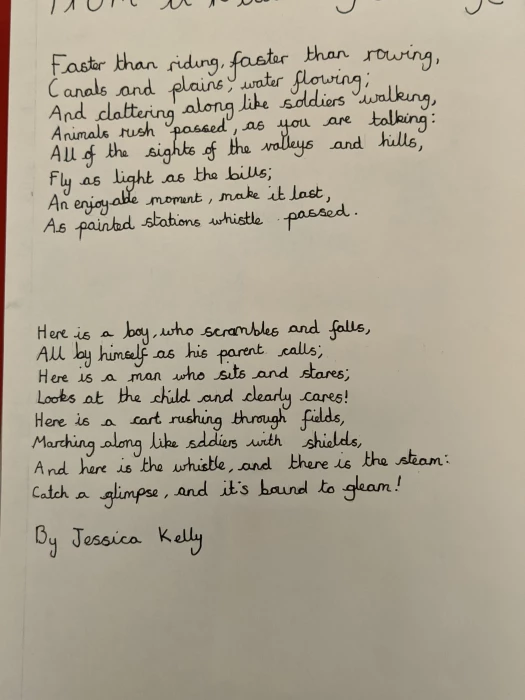 Faster than riding, faster than rowing,
Canals and plains, water flowing;
And clattering along like soldiers walking,
Animals rush passed, as you are talking:
All of the sights of the valleys and hills,
Fly as light as the bills;
An enjoyable moment, make it last,
As painted stations whistle passed.
Here is a boy, who scrambles and falls,
All by himself as his parent calls;
Here is a man who sits and stares;
Looks at the child and clearly cares!
Here is a cart rushing through fields,
Marching along like soldiers with shields,
And here is the whistle, and there is the steam:
Catch a glimpse, and it's bound to gleam!
By Jessica Kelly